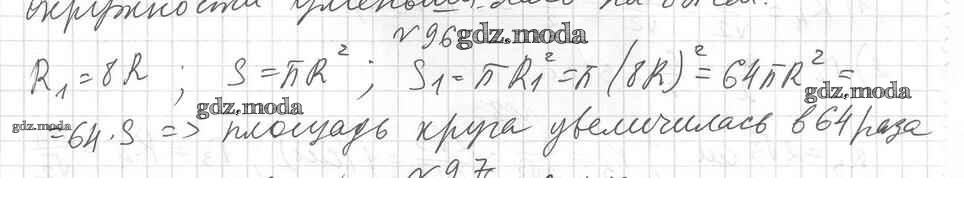 окружности уменьшилась на
№96 gdz.moda
R₁ = 8R ; S = πR² ; S₁ = πR₁² = π(8R)² = 64πR² =
gdz.moda gdz.moda
gdz.moda = 64·S => площадь круга увеличилась в 64 раза
№97